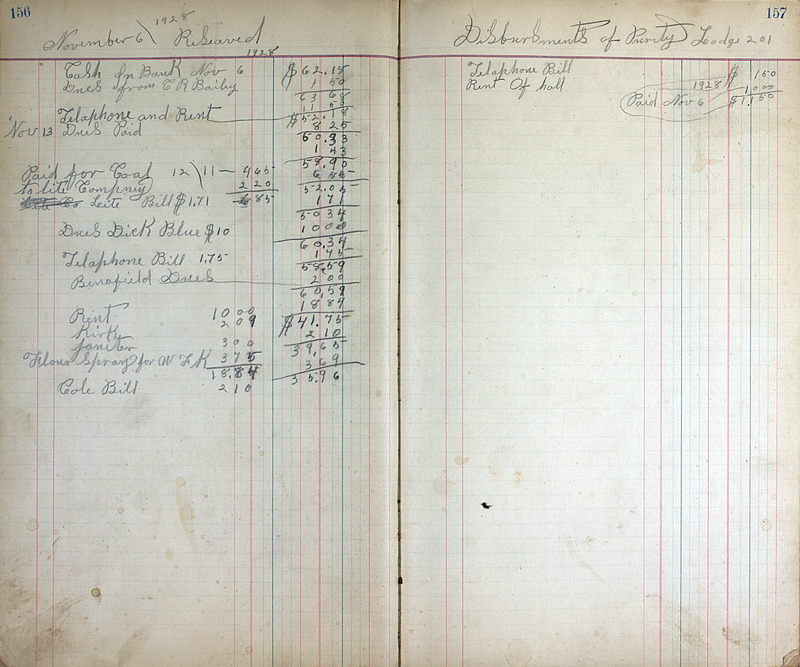 156
1928
November 6 \ Reseaved
1928
Cash On Bank Nov 6 $62.18
Dues from C R Baily 1 50
63 68
11 50
Telaphone and Rent $52.18
Nov 13 Dues Paid 8 25
60.93
1 43
58.90
Paid for Coal 12 \ 11 — 465 6 85
to lite Compney 220 52.05
Leite Bill $1.71 685 171
5034
Dues Dick Blue $10 1000
60.34
Telaphone Bill 1.75 1 75
58.59
Binafield Dues 200
60.59
1884
Rent 1000 $41.75
Kirk 209 210
Janiter 300 39.65
Flour Spray for W F K 375 369
18.84 35.96
Cole Bill 210
157
Disbursments of Purity Lodge 201
Telaphone Bill $ 150
Rent Of hall 1000
1928
Paid Nov 6 $11.50